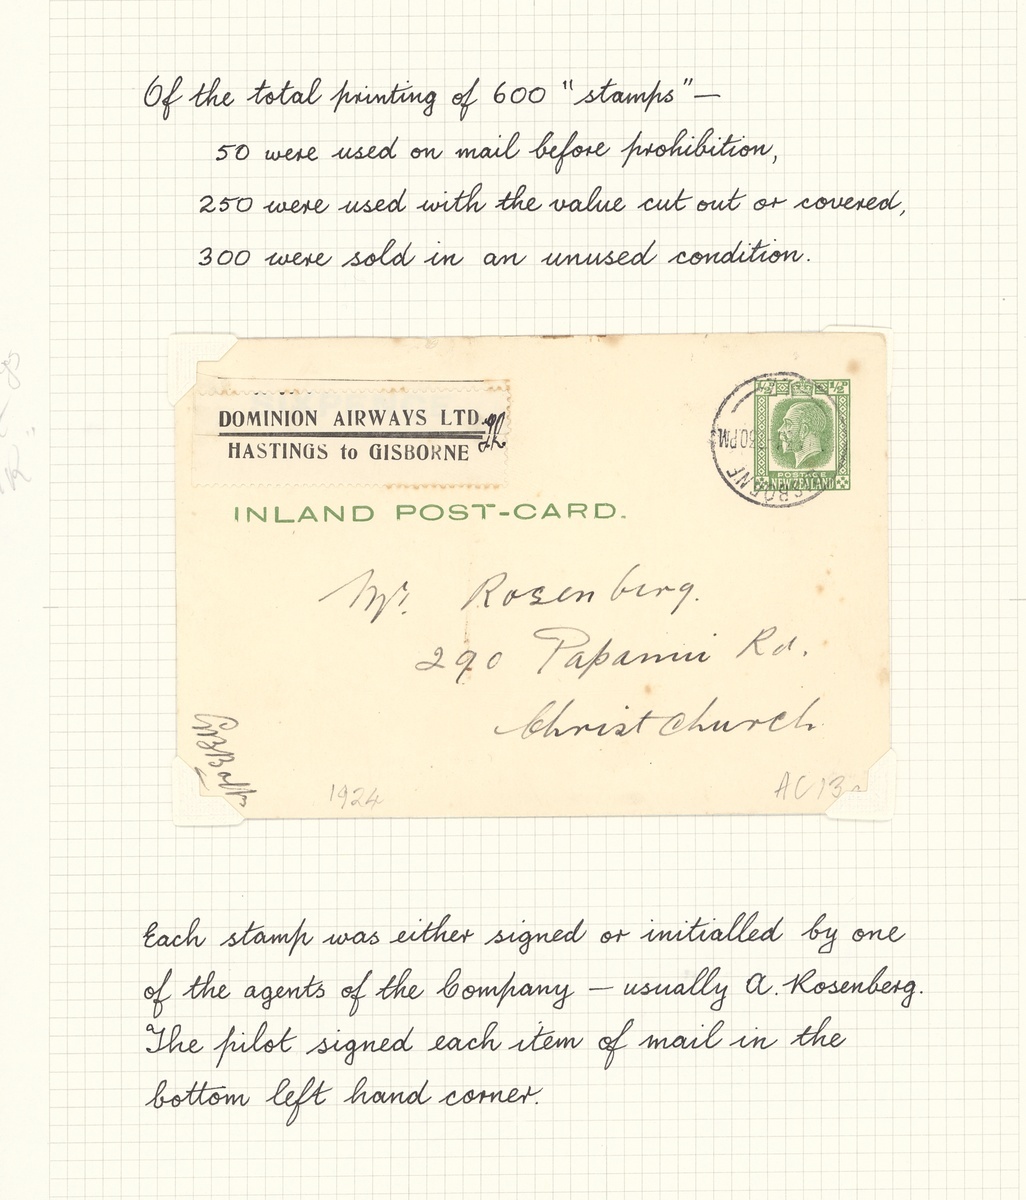 Of the total printing of 600 "stamps"—
50 were used on mail before prohibition,
250 were used with the value cut out or covered,
300 were sold in an unused condition.
DOMINION AIRWAYS LTD.
HASTINGS to GISBORNE
½ ½ᴰ
30PM
POSTAGE
NEW ZEALAND
INLAND POST-CARD.
Mr. Rosenberg.
290 Papanui Rd.
Christchurch
1924
Each stamp was either signed or initialled by one
of the agents of the Company — usually A. Rosenberg.
The pilot signed each item of mail in the
bottom left hand corner.